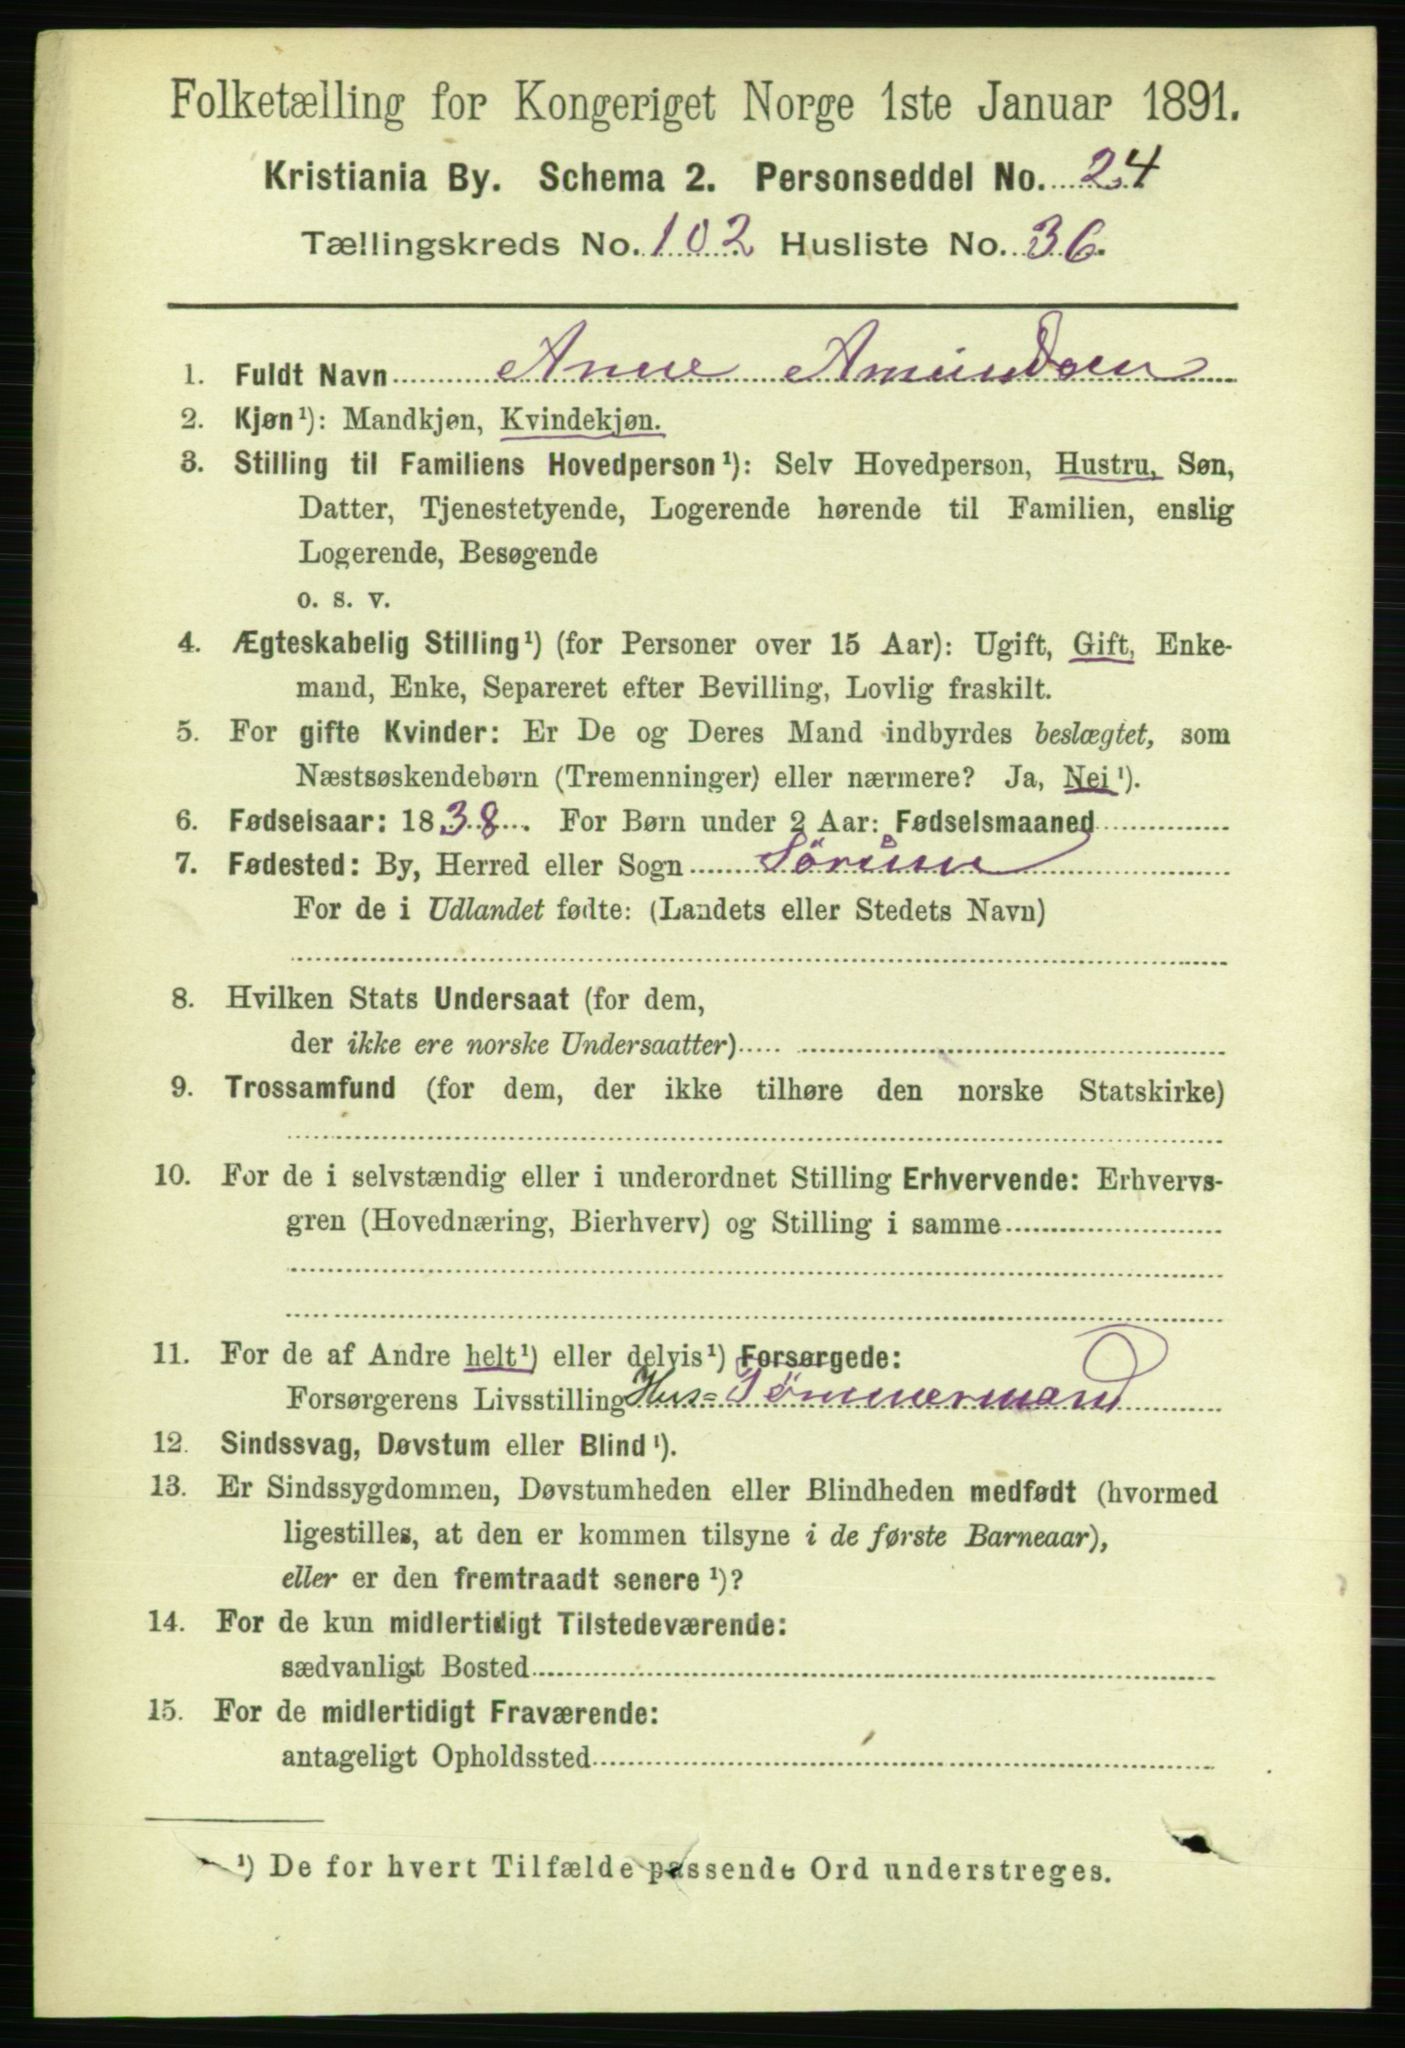 Folketælling for Kongeriget Norge 1ste Januar 1891.
Kristiania By. Schema 2. Personseddel No. 24
Tællingskreds No. 102 Husliste No. 36.
1. Fuldt Navn Anne Amundsen
2. Kjøn¹): Mandkjøn, Kvindekjøn.
3. Stilling til Familiens Hovedperson¹): Selv Hovedperson, Hustru, Søn,
Datter, Tjenestetyende, Logerende hørende til Familien, enslig
Logerende, Besøgende
o. s. v.
4. Ægteskabelig Stilling¹) (for Personer over 15 Aar): Ugift, Gift, Enke-
mand, Enke, Separeret efter Bevilling, Lovlig fraskilt.
5. For gifte Kvinder: Er De og Deres Mand indbyrdes beslægtet, som
Næstsøskendebørn (Tremenninger) eller nærmere? Ja, Nei¹).
6. Fødselsaar: 1838. For Børn under 2 Aar: Fødselsmaaned
7. Fødested: By, Herred eller Sogn Sørum
For de i Udlandet fødte: (Landets eller Stedets Navn)
8. Hvilken Stats Undersaat (for dem,
der ikke ere norske Undersaatter)
9. Trossamfund (for dem, der ikke tilhøre den norske Statskirke)
10. For de i selvstændig eller i underordnet Stilling Erhvervende: Erhvervs-
gren (Hovednæring, Bierhverv) og Stilling i samme
11. For de af Andre helt¹) eller delvis¹) Forsørgede:
Forsørgerens Livsstilling Hus=Tömmermand
12. Sindssvag, Døvstum eller Blind¹).
13. Er Sindssygdommen, Døvstumheden eller Blindheden medfødt (hvormed
ligestilles, at den er kommen tilsyne i de første Barneaar),
eller er den fremtraadt senere¹)?
14. For de kun midlertidigt Tilstedeværende:
sædvanligt Bosted
15. For de midlertidigt Fraværende:
antageligt Opholdssted
¹) De for hvert Tilfælde passende Ord understreges.